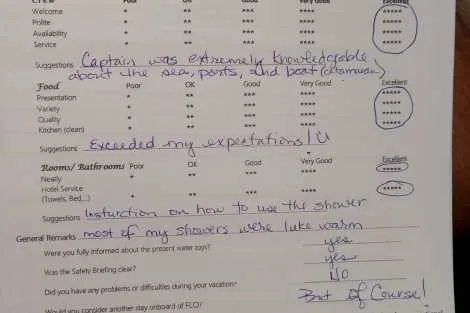 CREW Poor OK Good Very Good Excellent
Welcome * ** *** **** *****
Polite * ** *** **** *****
Availability * ** *** **** *****
Service * ** *** **** *****
Suggestions Captain was extremely knowledgable
about the sea, ports, and boat (catamaran)
Food Poor OK Good Very Good Excellent
Presentation * ** *** **** *****
Variety * ** *** **** *****
Quality * ** *** **** *****
Kitchen (clean) * ** *** **** *****
Suggestions Exceeded my expectations!
Rooms/ Bathrooms Poor OK Good Very Good Excellent
Neatly * ** *** **** *****
Hotel Service
(Towels, Bed,..) * ** *** **** *****
Suggestions Insturction on how to use the shower
General Remarks most of my showers were luke warm
Were you fully informed about the present water toys? yes
Was the Safety Briefing clear? yes
Did you have any problems or difficulties during your vacation? NO
Would you consider another stay onboard of FLO? But of Course!